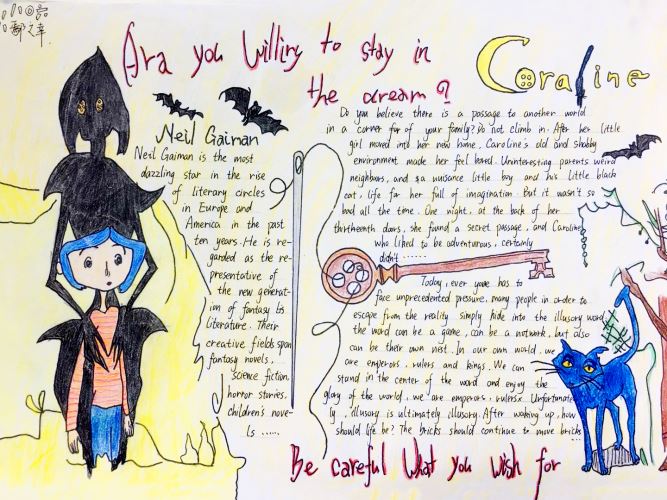 Ara you Willing to stay in
the dream?
Coraline
Neil Gaiman
Neil Gaiman is the most
dazzling star in the rise
of literary circles
in Europe and
America in the past
ten years. He is re-
garded as the re-
presentative of
the new generat-
ion of fantasy
literature. Their
creative fields span
fantasy novels,
science fiction,
horror stories,
children's nove-
ls ......
Do you believe there is a passage to another world
in a corner of your family? Do not climb in. After her little
girl moved into her new home, Caroline's old and shabby
environment made her feel bored. Uninteresting parents, weird
neighbors, and a nuisance little boy and his little black
cat, life for her full of imagination. But it wasn't so
bad all the time. One night, at the back of her
thirteenth doors, she found a secret passage, and Caroline,
who liked to be adventurous, certainly
didn't ......
Today, ever yone has to
face unprecedented pressure, many people in order to
escape from the reality simply hide into the illusory word,
the word can be a game, can be a network, but also
can be their own nest. In our own world, we
are emperors, rulers and kings. We can
stand in the center of the word and enjoy the
glory of the world, we are emperors, rulers. Unfortunate
ly, illusory is ultimately illusory. After waking up, how
should life be? The bricks should continue to move bricks
...
Be careful What you wish for